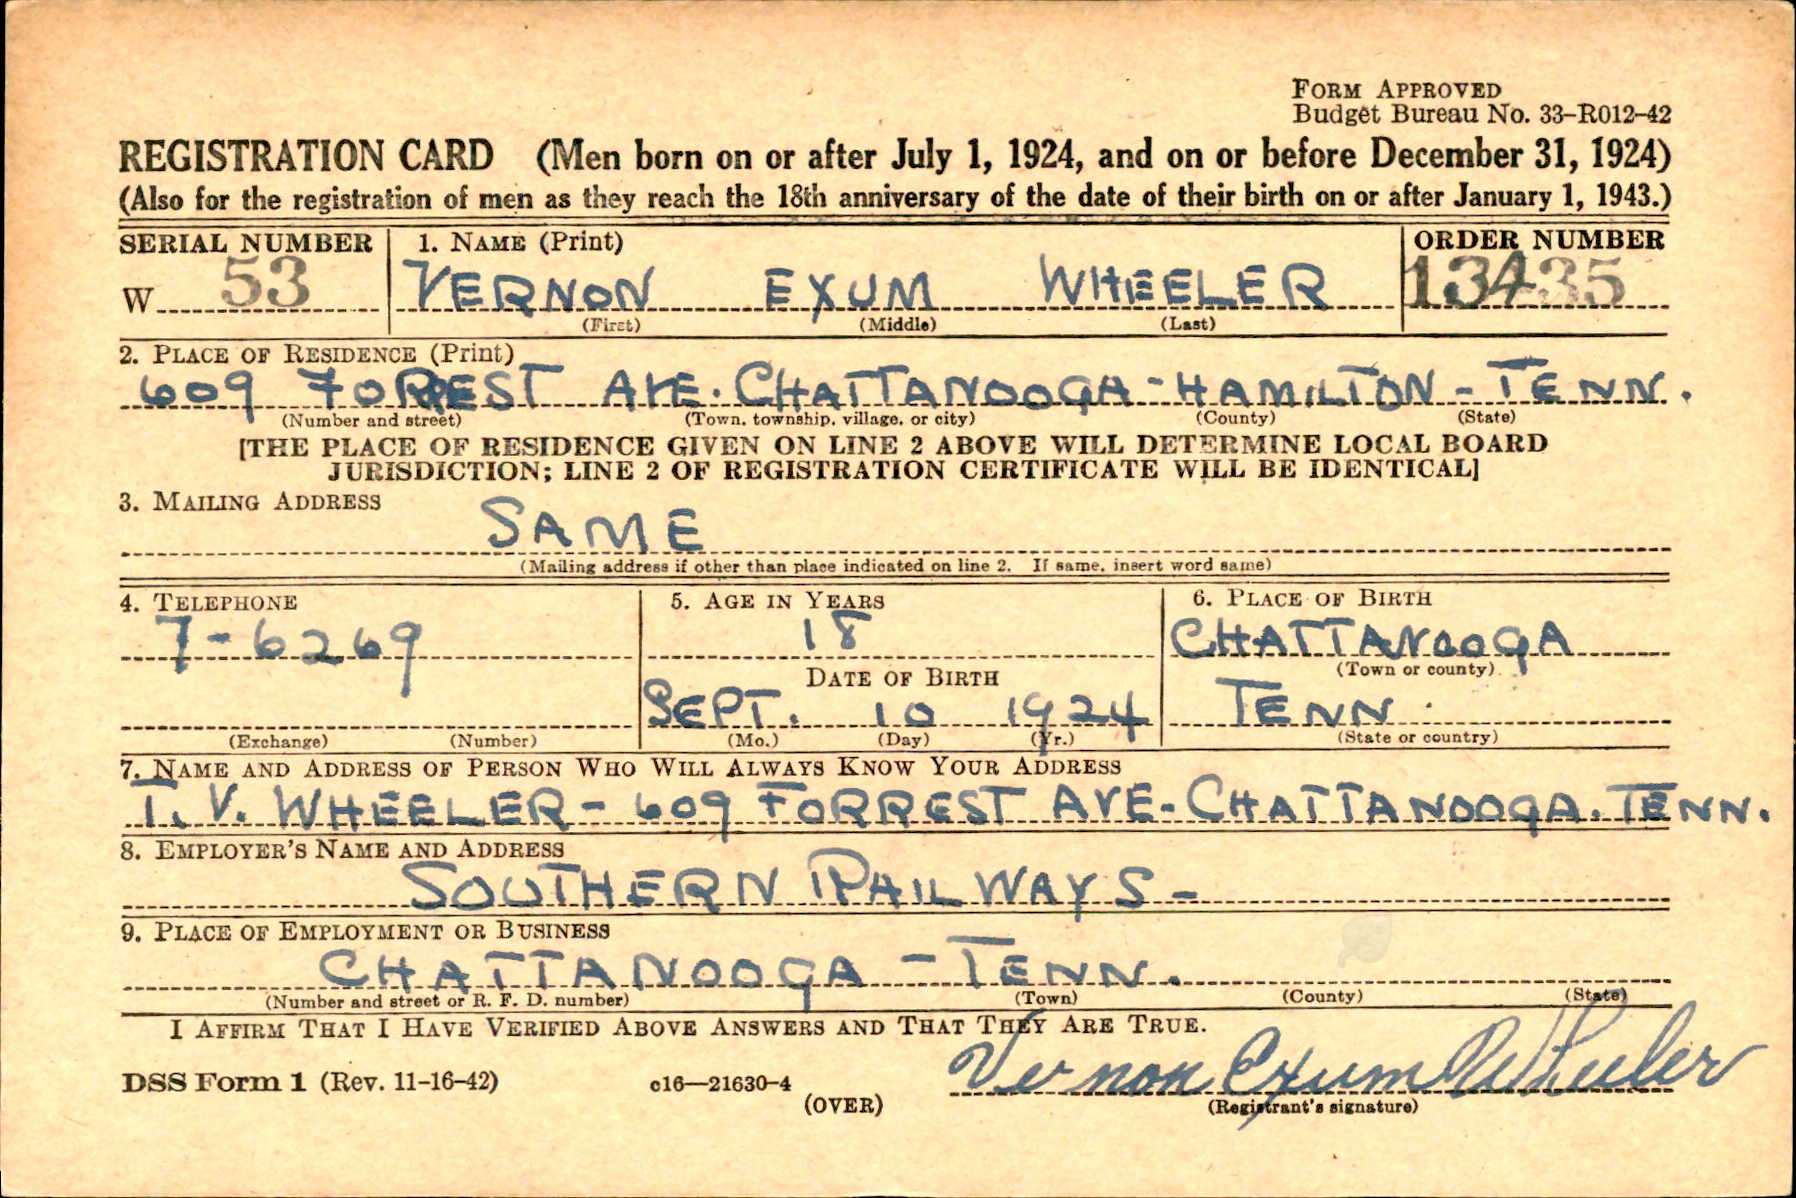 FORM APPROVED
Budget Bureau No. 33-R012-42
REGISTRATION CARD (Men born on or after July 1, 1924, and on or before December 31, 1924)
(Also for the registration of men as they reach the 18th anniversary of the date of their birth on or after January 1, 1943.)
SERIAL NUMBER 1. NAME (Print) ORDER NUMBER
W 53 VERNON EXUM WHEELER 13435
(First) (Middle) (Last)
2. PLACE OF RESIDENCE (Print)
609 FORREST AVE. CHATTANOOGA - HAMILTON - TENN.
(Number and street) (Town, township, village, or city) (County) (State)
[THE PLACE OF RESIDENCE GIVEN ON LINE 2 ABOVE WILL DETERMINE LOCAL BOARD
JURISDICTION; LINE 2 OF REGISTRATION CERTIFICATE WILL BE IDENTICAL]
3. MAILING ADDRESS
SAME
(Mailing address if other than place indicated on line 2. If same, insert word same)
4. TELEPHONE 5. AGE IN YEARS 6. PLACE OF BIRTH
7-6269 18 CHATTANOOGA
DATE OF BIRTH (Town or county)
SEPT. 10 1924 TENN.
(Exchange) (Number) (Mo.) (Day) (Yr.) (State or country)
7. NAME AND ADDRESS OF PERSON WHO WILL ALWAYS KNOW YOUR ADDRESS
T. V. WHEELER - 609 FORREST AVE - CHATTANOOGA. TENN.
8. EMPLOYER'S NAME AND ADDRESS
SOUTHERN RAILWAYS -
9. PLACE OF EMPLOYMENT OR BUSINESS
CHATTANOOGA - TENN.
(Number and street or R. F. D. number) (Town) (County) (State)
I AFFIRM THAT I HAVE VERIFIED ABOVE ANSWERS AND THAT THEY ARE TRUE.
DSS Form 1 (Rev. 11-16-42) c16—21630-4 Vernon Exum Wheeler
(OVER) (Registrant's signature)